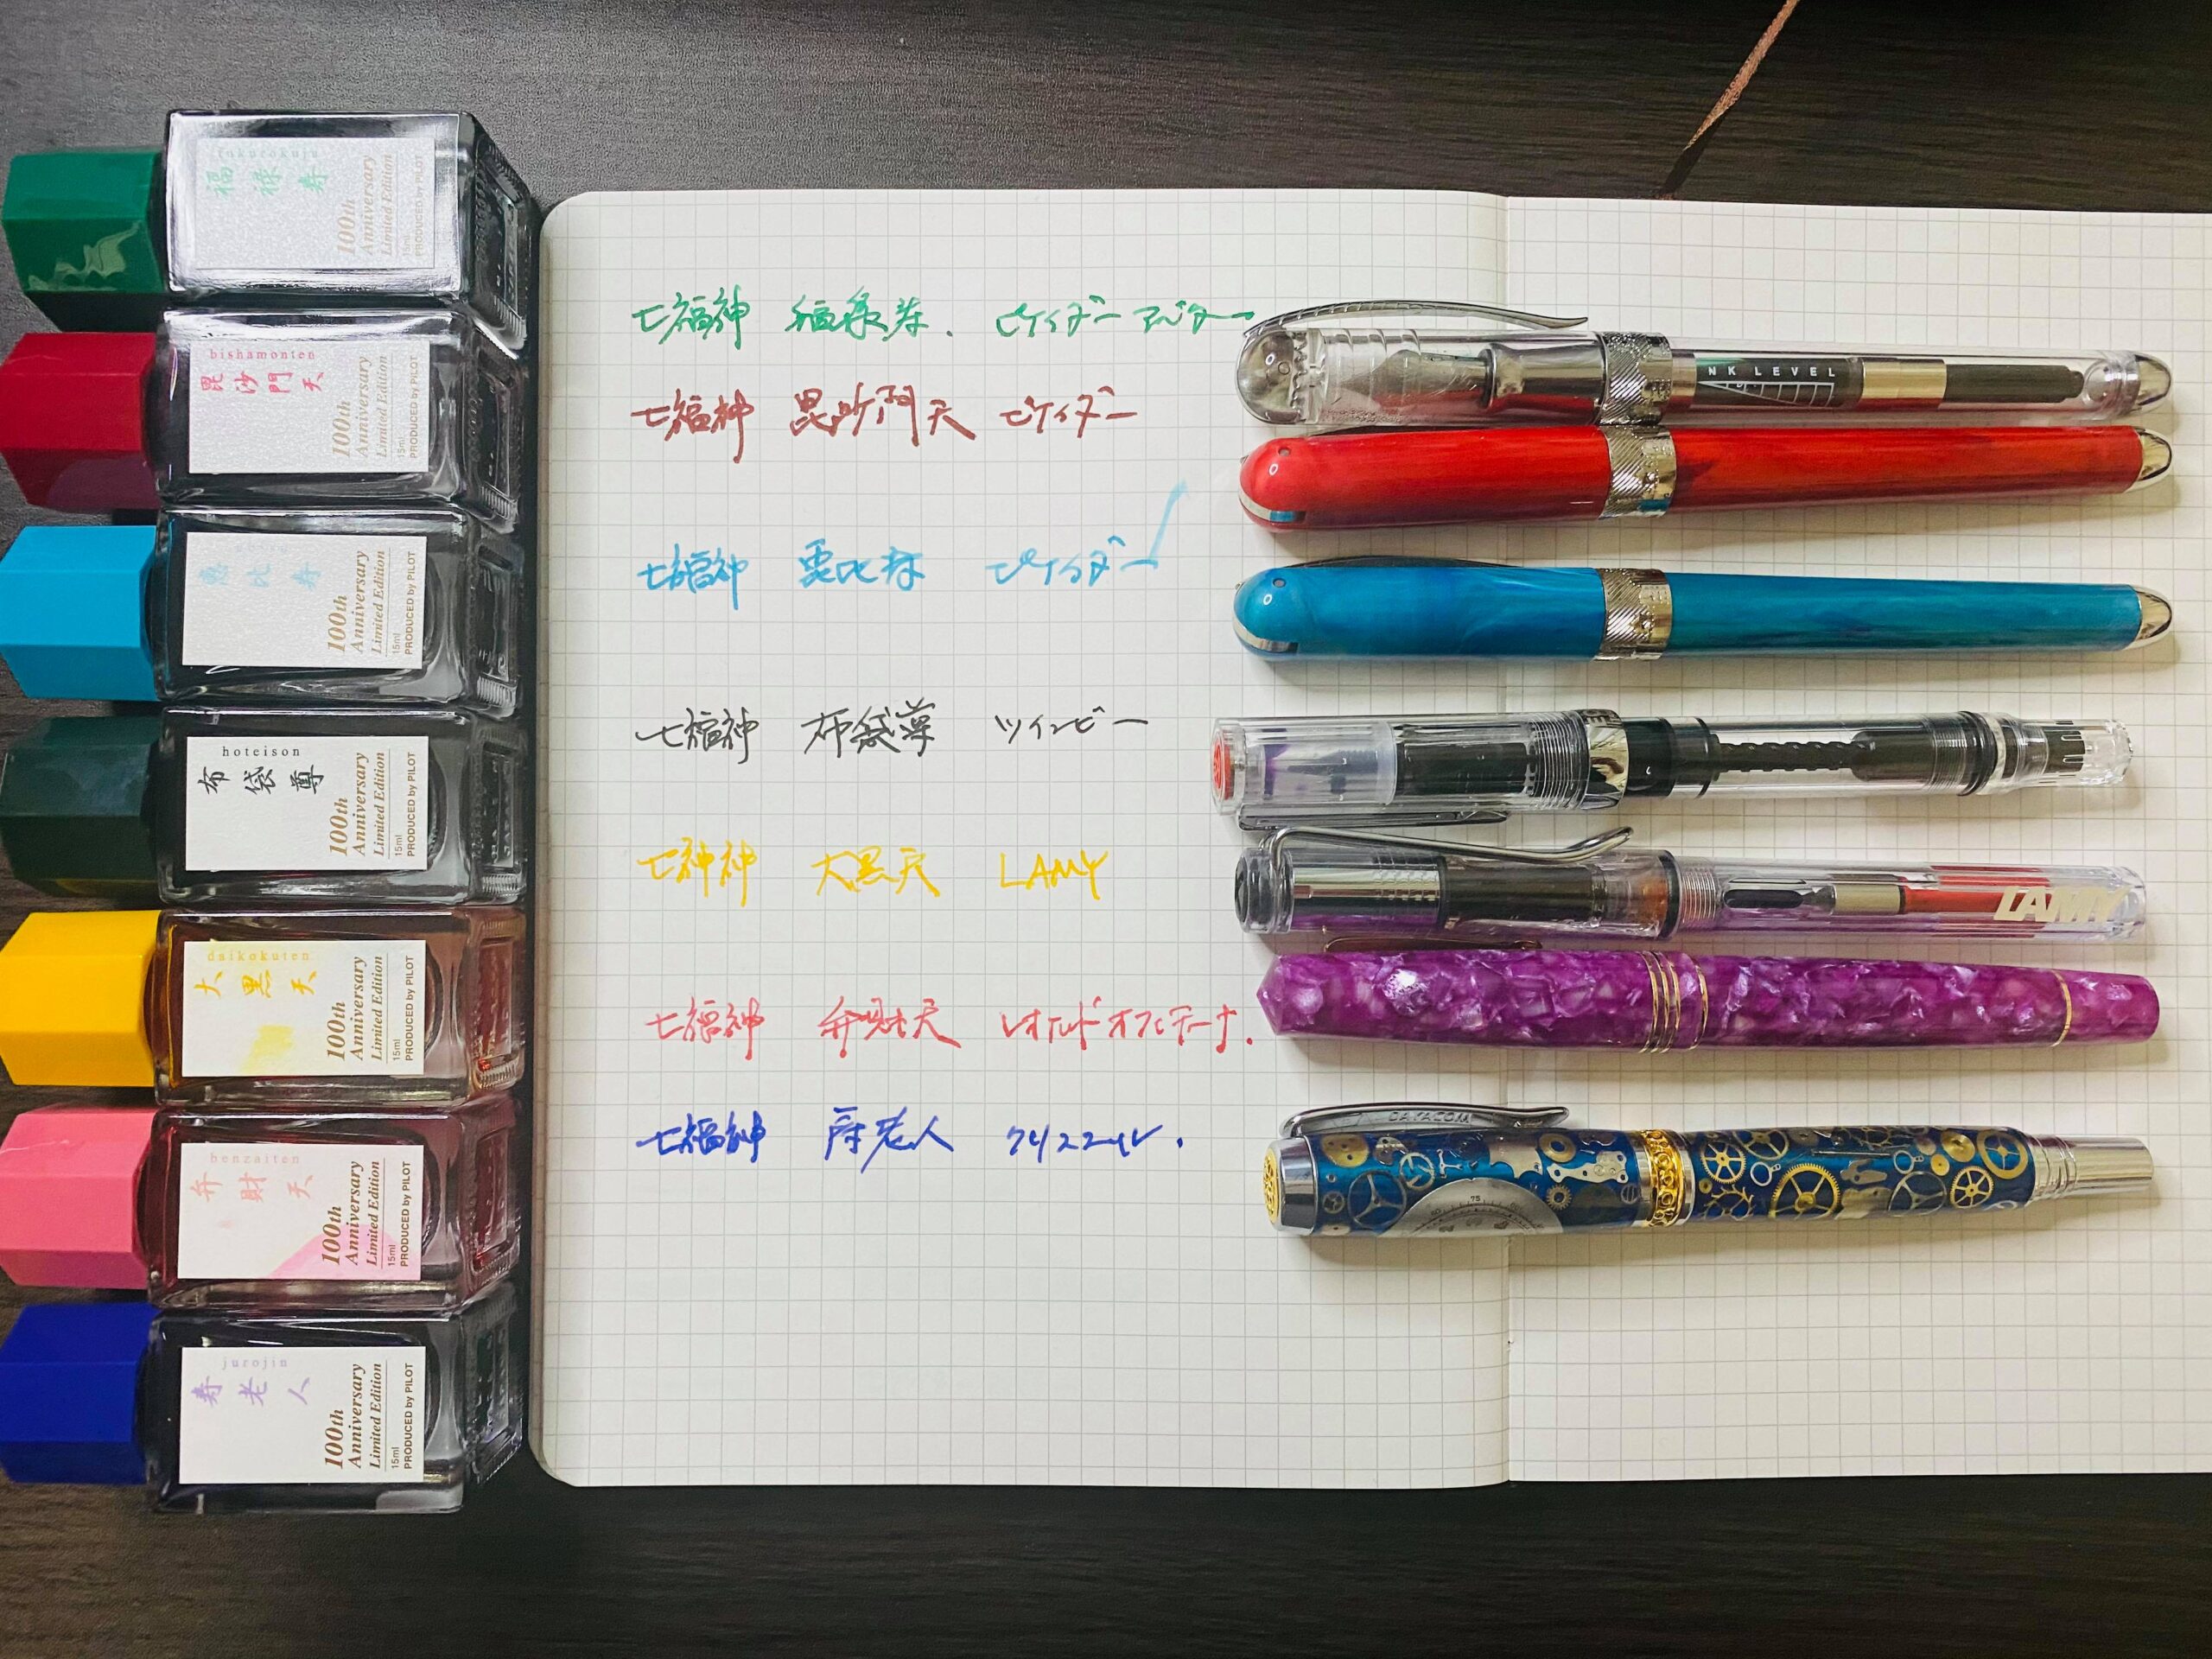 fukurokuju
福禄寿
100th
Anniversary
Limited Edition
15ml
PRODUCED by PILOT
bishamonten
毘沙門天
100th
Anniversary
Limited Edition
15ml
PRODUCED by PILOT
恵比寿
100th
Anniversary
Limited Edition
15ml
PRODUCED by PILOT
hoteison
布袋尊
100th
Anniversary
Limited Edition
15ml
PRODUCED by PILOT
daikokuten
大黒天
100th
Anniversary
Limited Edition
15ml
PRODUCED by PILOT
benzaiten
弁財天
100th
Anniversary
Limited Edition
15ml
PRODUCED by PILOT
jurojin
寿老人
100th
Anniversary
Limited Edition
15ml
PRODUCED by PILOT
七福神 福禄寿. ビケイダー アバター
七福神 毘沙門天 ビケイダー
七福神 恵比寿 ビケイダー
七福神 布袋尊 ツインビー
七神神 大黒天 LAMY
七福神 弁財天 レオナルド オフィチーナ.
七福神 寿老人
NK LEVEL
LAMY